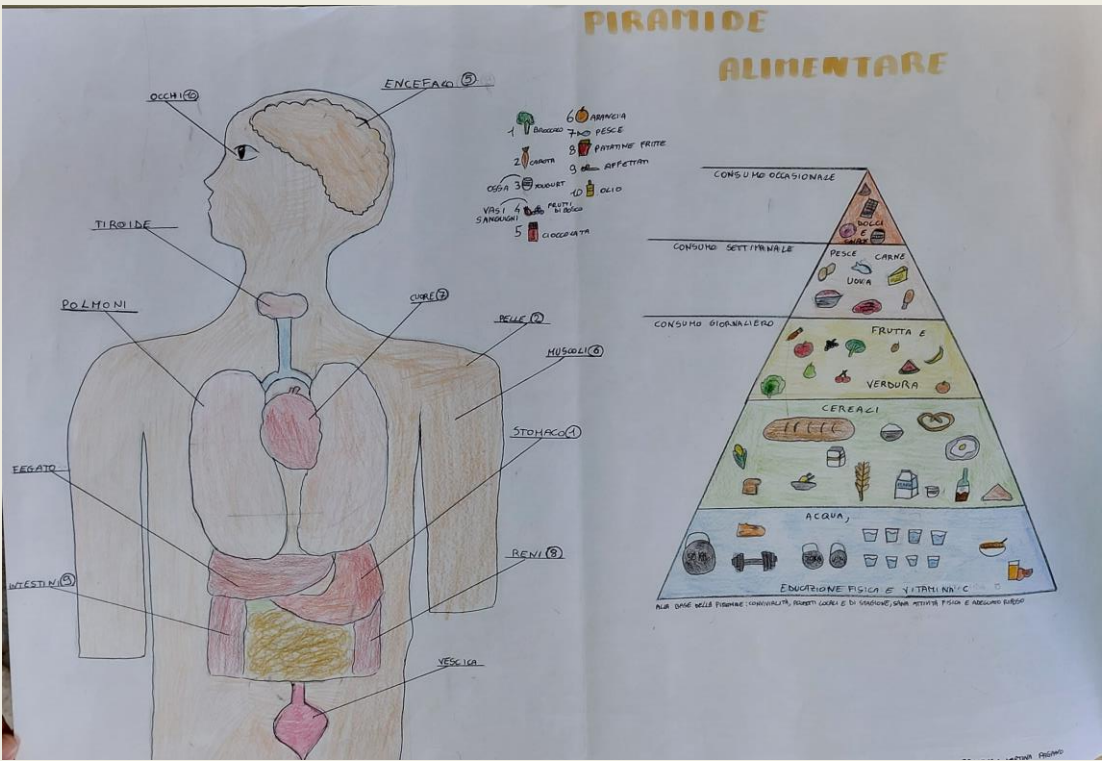 PIRAMIDE
ALIMENTARE
OCCHI 10
ENCEFALO 5
TIROIDE
POLMONI
CUORE 7
PELLE 2
MUSCOLI 6
STOMACO 1
FEGATO
INTESTINI 9
RENI 8
VESCICA
1 BROCCOLO
2 CAROTA
OSSA 3 YOUGURT
VASI SANGUIGNI 4 FRUTTI DI BOSCO
5 CIOCCOLATA
6 ARANCIA
7 PESCE
8 PATATINE FRITTE
9 AFFETTATI
10 OLIO
CONSUMO OCCASIONALE
DOLCI
E
SNACK
CONSUMO SETTIMANALE
PESCE CARNE
UOVA
CONSUMO GIORNALIERO
FRUTTA E
VERDURA
CEREALI
ACQUA,
EDUCAZIONE FISICA E VITAMINA C
ALLA BASE DELLA PIRAMIDE: CONVIVIALITÀ, PRODOTTI LOCALI E DI STAGIONE, SANA ATTIVITÀ FISICA E ADEGUATO RIPOSO